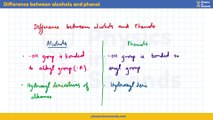 Difference between alcohols and phenol.
Difference between alcohols and Phenols
Alcohols
Phenols
-OH group is bonded to alkyl group (-R)
-OH group is bonded to aryl group
Hydroxyl derivatives of alkanes
Hydroxyl deri